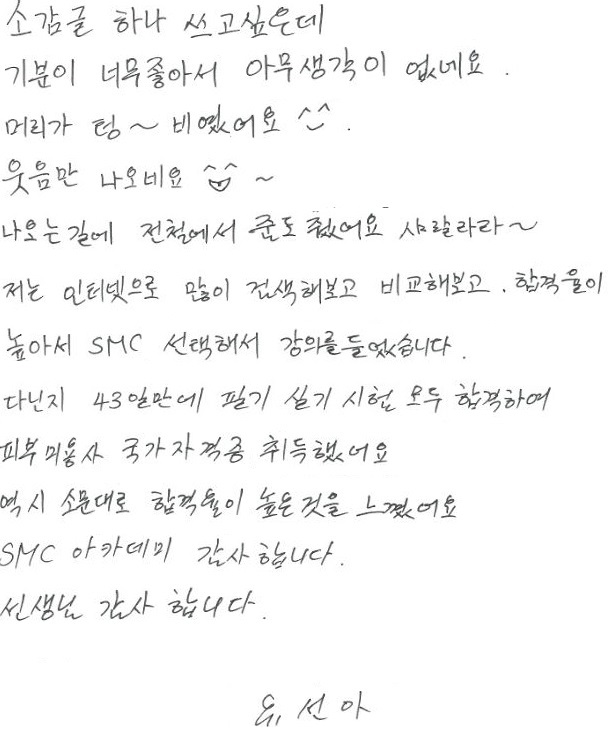 소감글 하나 쓰고싶은데
기분이 너무좋아서 아무생각이 없네요.
머리가 텅~ 비였어요 ^^.
웃음만 나오네요 ^^ ~
나오는길에 전철에서 돈도 줬어요 샤랄라라~
저는 인터넷으로 많이 검색해보고 비교해보고. 합격율이
높아서 SMC 선택해서 강의를들었습니다.
다닌지 43일만에 필기 실기 시험 모두 합격하여
피부미용사 국가자격증 취득했어요
역시 소문대로 합격율이 높은것을 느꼈어요
SMC 아카데미 감사합니다.
선생님 감사합니다.
유선아